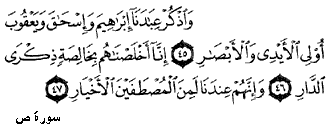 وَٱذْكُرْ عِبَـٰدَنَآ إِبْرَٰهِيمَ وَإِسْحَـٰقَ وَيَعْقُوبَ
أُو۟لِى ٱلْأَيْدِى وَٱلْأَبْصَـٰرِ ٤٥ إِنَّآ أَخْلَصْنَـٰهُم بِخَالِصَةٍ ذِكْرَى
ٱلدَّارِ ٤٦ وَإِنَّهُمْ عِندَنَا لَمِنَ ٱلْمُصْطَفَيْنَ ٱلْأَخْيَارِ ٤٧
سورة ص